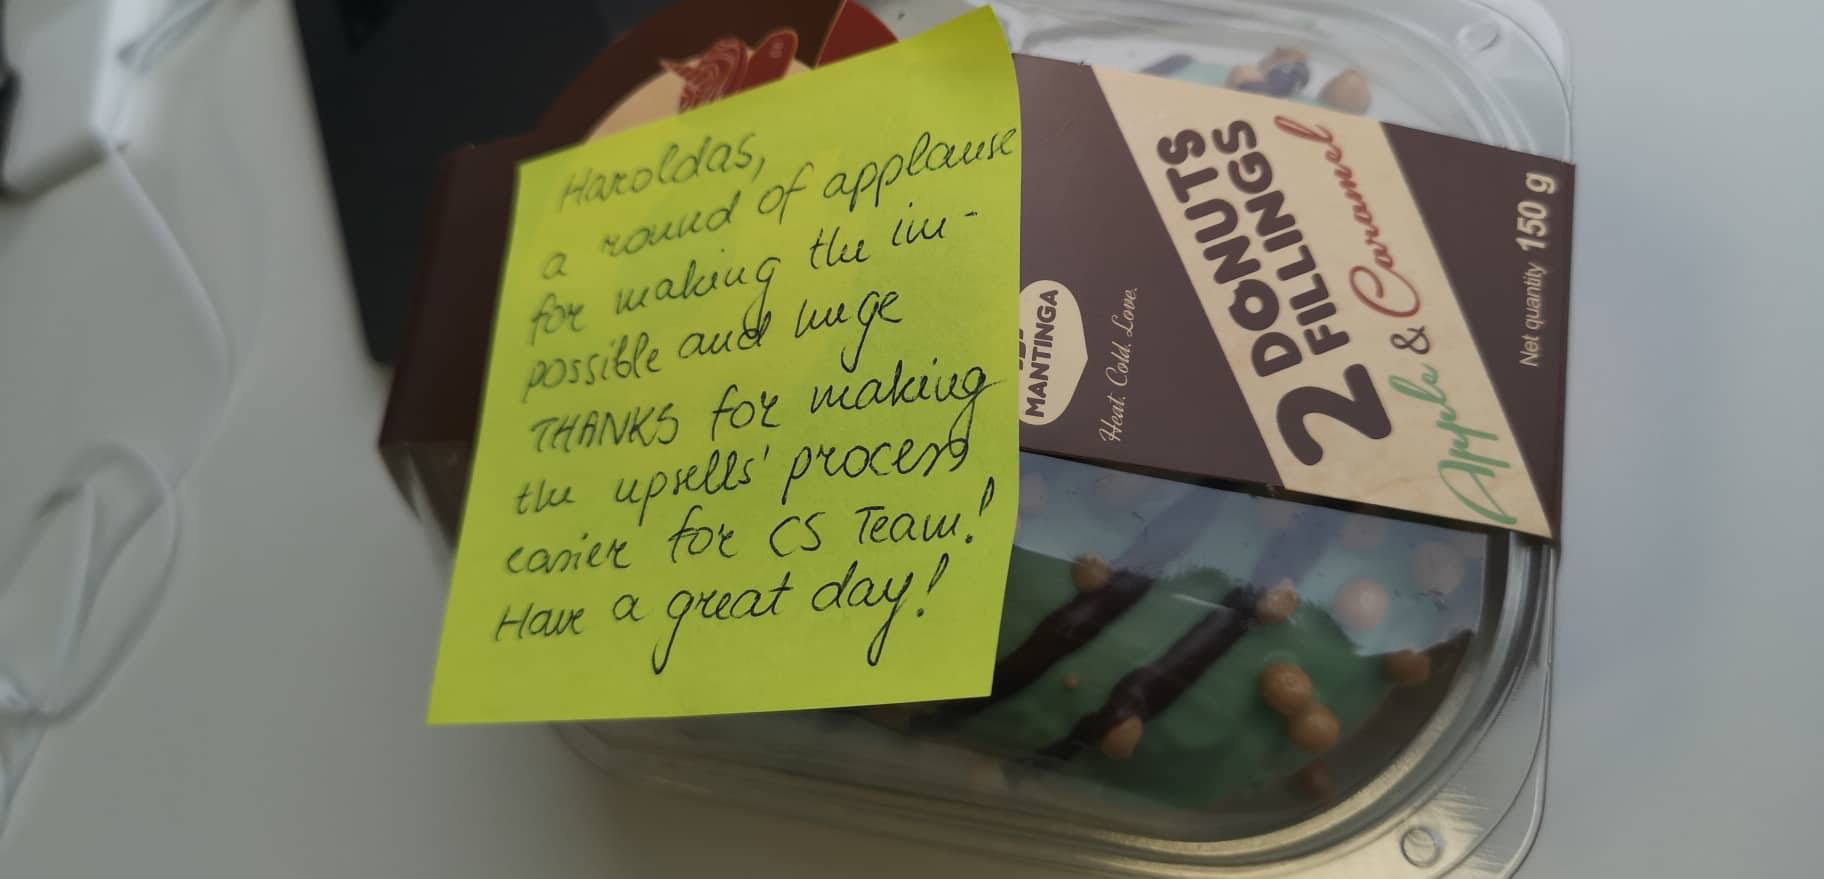 Haroldas,
a round of applause
for making the im-
possible and huge
THANKS for making
the upsells' process
easier for CS Team!
Have a great day!
MANTINGA
Heat. Cold. Love.
2 DONUTS
FILLINGS
Apple & Caramel
Net quantity 150 g